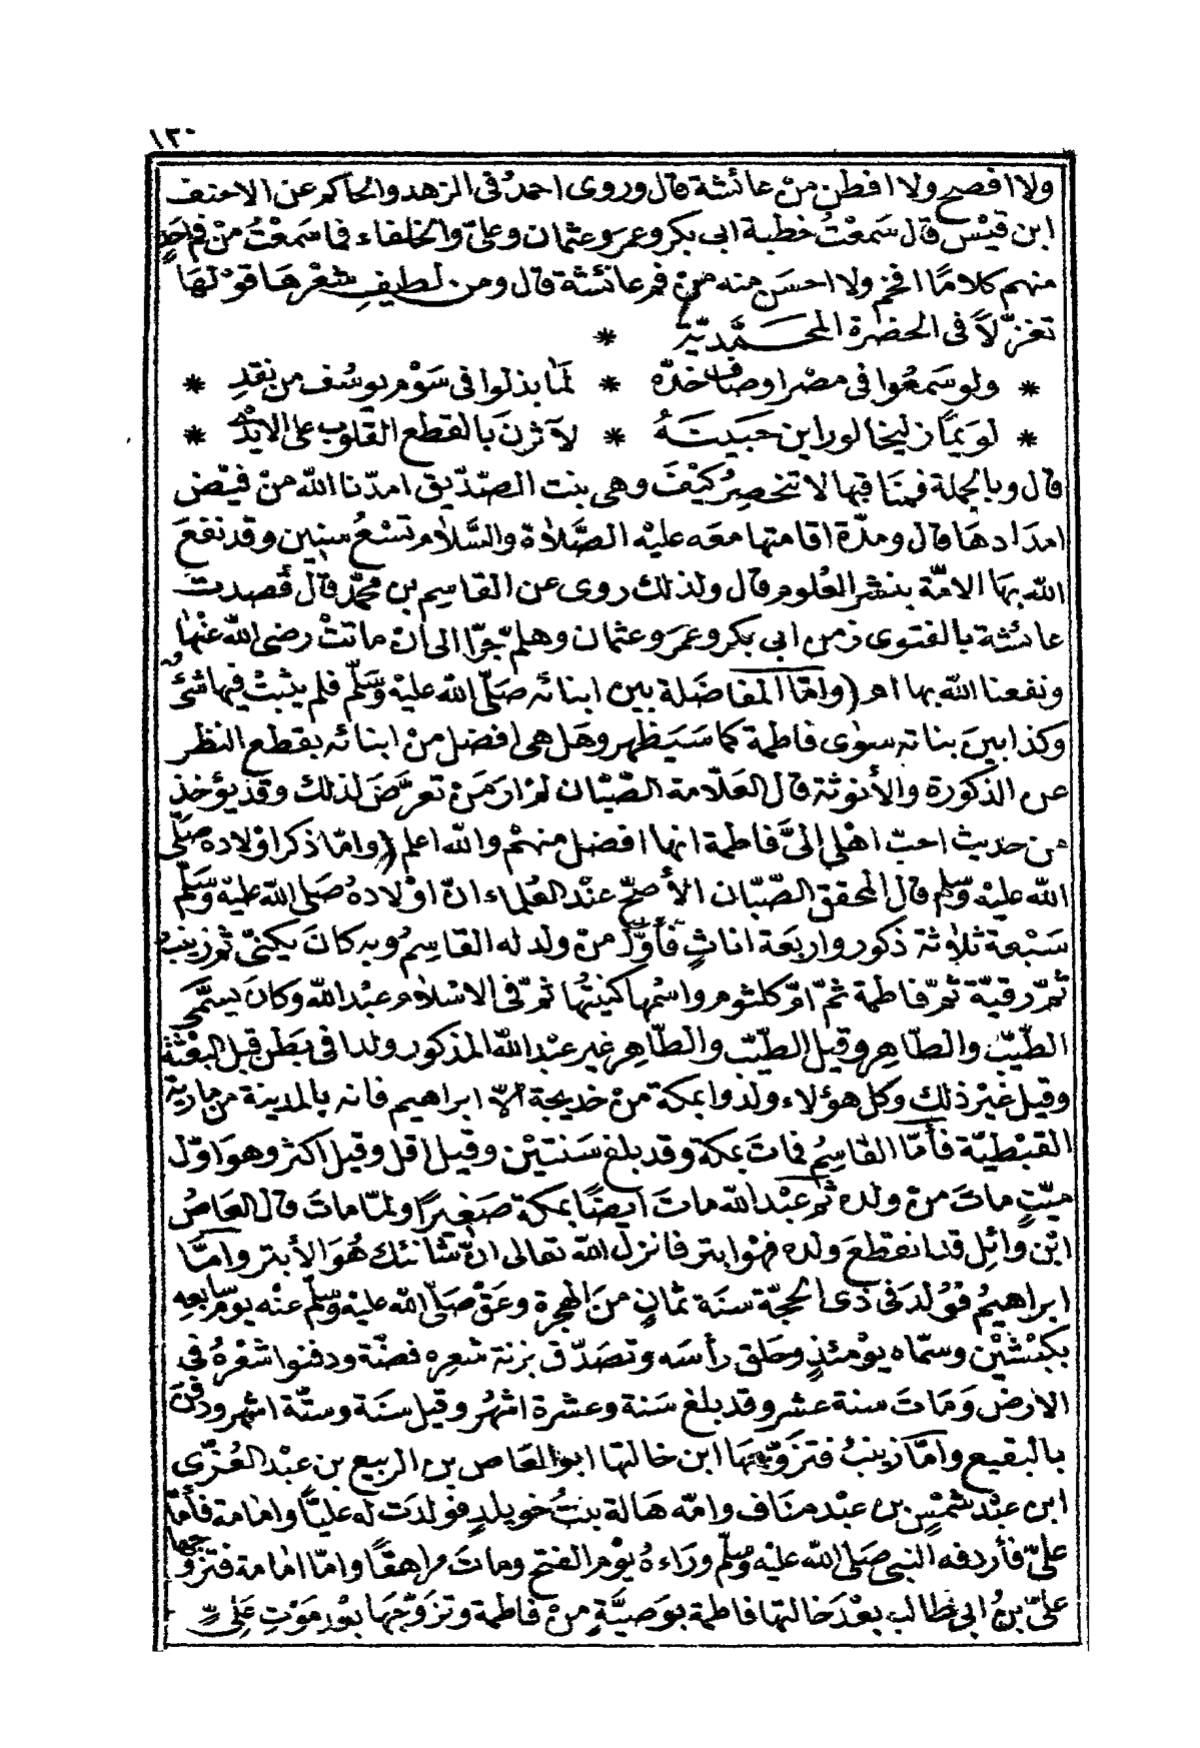 ١٣٠
ولا افصح ولا افطن من عائشة قال وروى احمد فى الزهد والحاكم عن الاحنف
ابن قيس قال سمعت خطبة ابى بكر وعمر وعثمان وعلى والخلفاء فما سمعت من فم احد
منهم كلاما افخم ولا احسن منه من فم عائشة قال ومن لطيف شعرها قولها
تغزلا فى الحضرة المحمدية *
* ولو سمعوا فى مصر اوصاف خده * لما بذلوا فى سوم يوسف من نقد *
* لويما زليخا لو راين جبينه * لآثرن بالقطع القلوب على الايدى *
قال وبالجملة فمناقبها لا تنحصر كيف وهى بنت الصديق امدنا الله من فيض
امدادها قال ومدة اقامتها معه عليه الصلاة والسلام تسع سنين وقد نفع
الله بها الامة بنشر العلوم قال ولذلك روى عن القاسم بن محمد قال قصدت
عائشة بالفتوى زمن ابى بكر وعمر وعثمان وهلم جرا الى ان ماتت رضى الله عنها
ونفعنا الله بها اهـ (واما المفاضلة بين ابنائه صلى الله عليه وسلم فلم يثبت فيها شئ
وكذا بين بناته سوى فاطمة كما سيظهر وهل هى افضل من ابنائه بقطع النظر
عن الذكورة والأنوثة قال العلامة الصبان لم ار من تعرض لذلك وقد يؤخذ
من حديث احب اهلى الى فاطمة انها افضل منهم والله اعلم (واما ذكر اولاده صلى
الله عليه وسلم قال المحقق الصبان الأصح عند العلماء ان اولاده صلى الله عليه وسلم
سبعة ثلاثة ذكور واربعة اناث فأول من ولد له القاسم وبه كان يكنى ثم زينب
ثم رقية ثم فاطمة ثم ام كلثوم واسمها كنيتها ثم فى الاسلام عبد الله وكان يسمى
الطيب والطاهر وقيل الطيب والطاهر غير عبد الله المذكور ولدا فى بطن قبل البعثة
وقيل غير ذلك وكل هؤلاء ولدوا بمكة من خديجة الا ابراهيم فانه بالمدينة من مارية
القبطية فأما القاسم فمات بمكة وقد بلغ سنتين وقيل اقل وقيل اكثر وهو اول
ميت مات من ولده ثم عبد الله مات ايضا بمكة صغيرا ولما مات قال العاص
ابن وائل قد انقطع ولده فهو ابتر فانزل الله تعالى ان شانئك هو الأبتر واما
ابراهيم فولد فى ذى الحجة سنة ثمان من الهجرة وعق صلى الله عليه وسلم عنه يوم سابعه
بكبشين وسماه يومئذ وحلق رأسه وتصدق بزنة شعره فضة ودفنوا شعره فى
الارض ومات سنة عشر وقد بلغ سنة وعشرة اشهر وقيل سنة وستة اشهر ودفن
بالبقيع واما زينب فتزوجها ابن خالتها ابو العاص بن الربيع بن عبد العزى
ابن عبد شمس بن عبد مناف وامه هالة بنت خويلد فولدت له عليا وامامة فأما
على فأردفه النبى صلى الله عليه وسلم وراءه يوم الفتح ومات مراهقا واما امامة فتزوجها
على بن ابى طالب بعد خالتها فاطمة بوصية من فاطمة وتزوجها بعد موت على